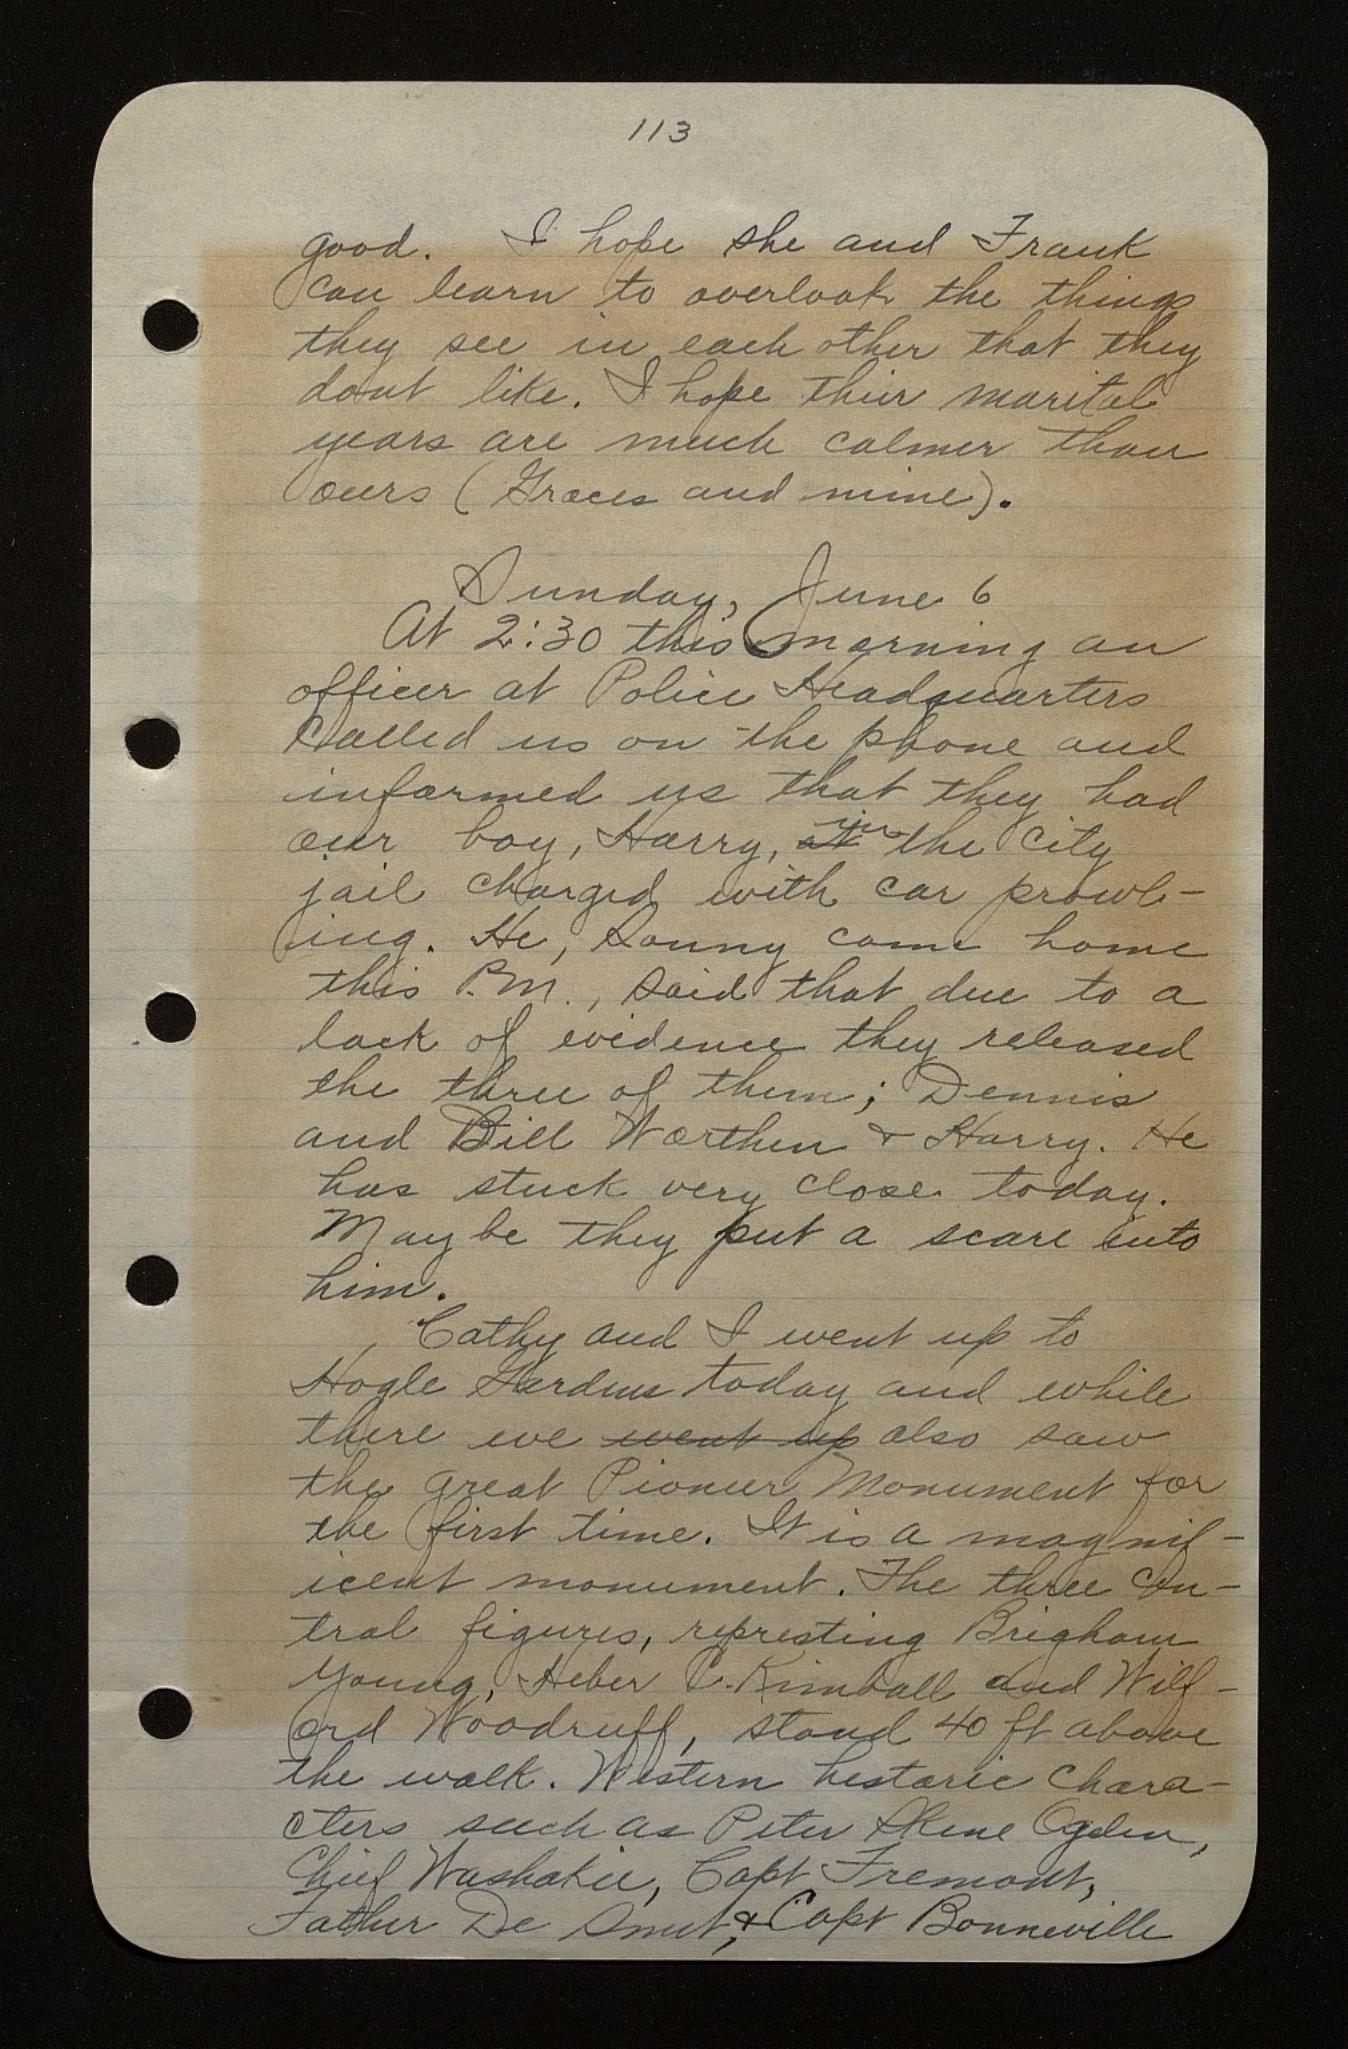 113
good. I hope she and Frank
can learn to overlook the things
they see in each other that they
dont like. I hope their marital
years are much calmer than
ours (Graces and mine).
Sunday, June 6
At 2:30 this morning an
officer at Police Headquarters
called us on the phone and
informed us that they had
our boy, Harry, at in the City
jail charged with car prowl-
ing. He, Sonny came home
this P.M., said that due to a
lack of evidence they released
the three of them; Dennis
and Bill Worthen & Harry. He
has stuck very close today.
Maybe they put a scare into
him.
Cathy and I went up to
Hogle Gardens today and while
there we went up also saw
the great Pioneer Monument for
the first time. It is a magnif-
icent monument. The three cen-
tral figures, represting Brigham
Young, Heber C. Kimball and Wilf-
ord Woodruff, stand 40 ft above
the walk. Western historic chara-
cters such as Peter Skene Ogden,
Chief Washakie, Capt Fremont,
Father De Smet, & Capt Bonneville